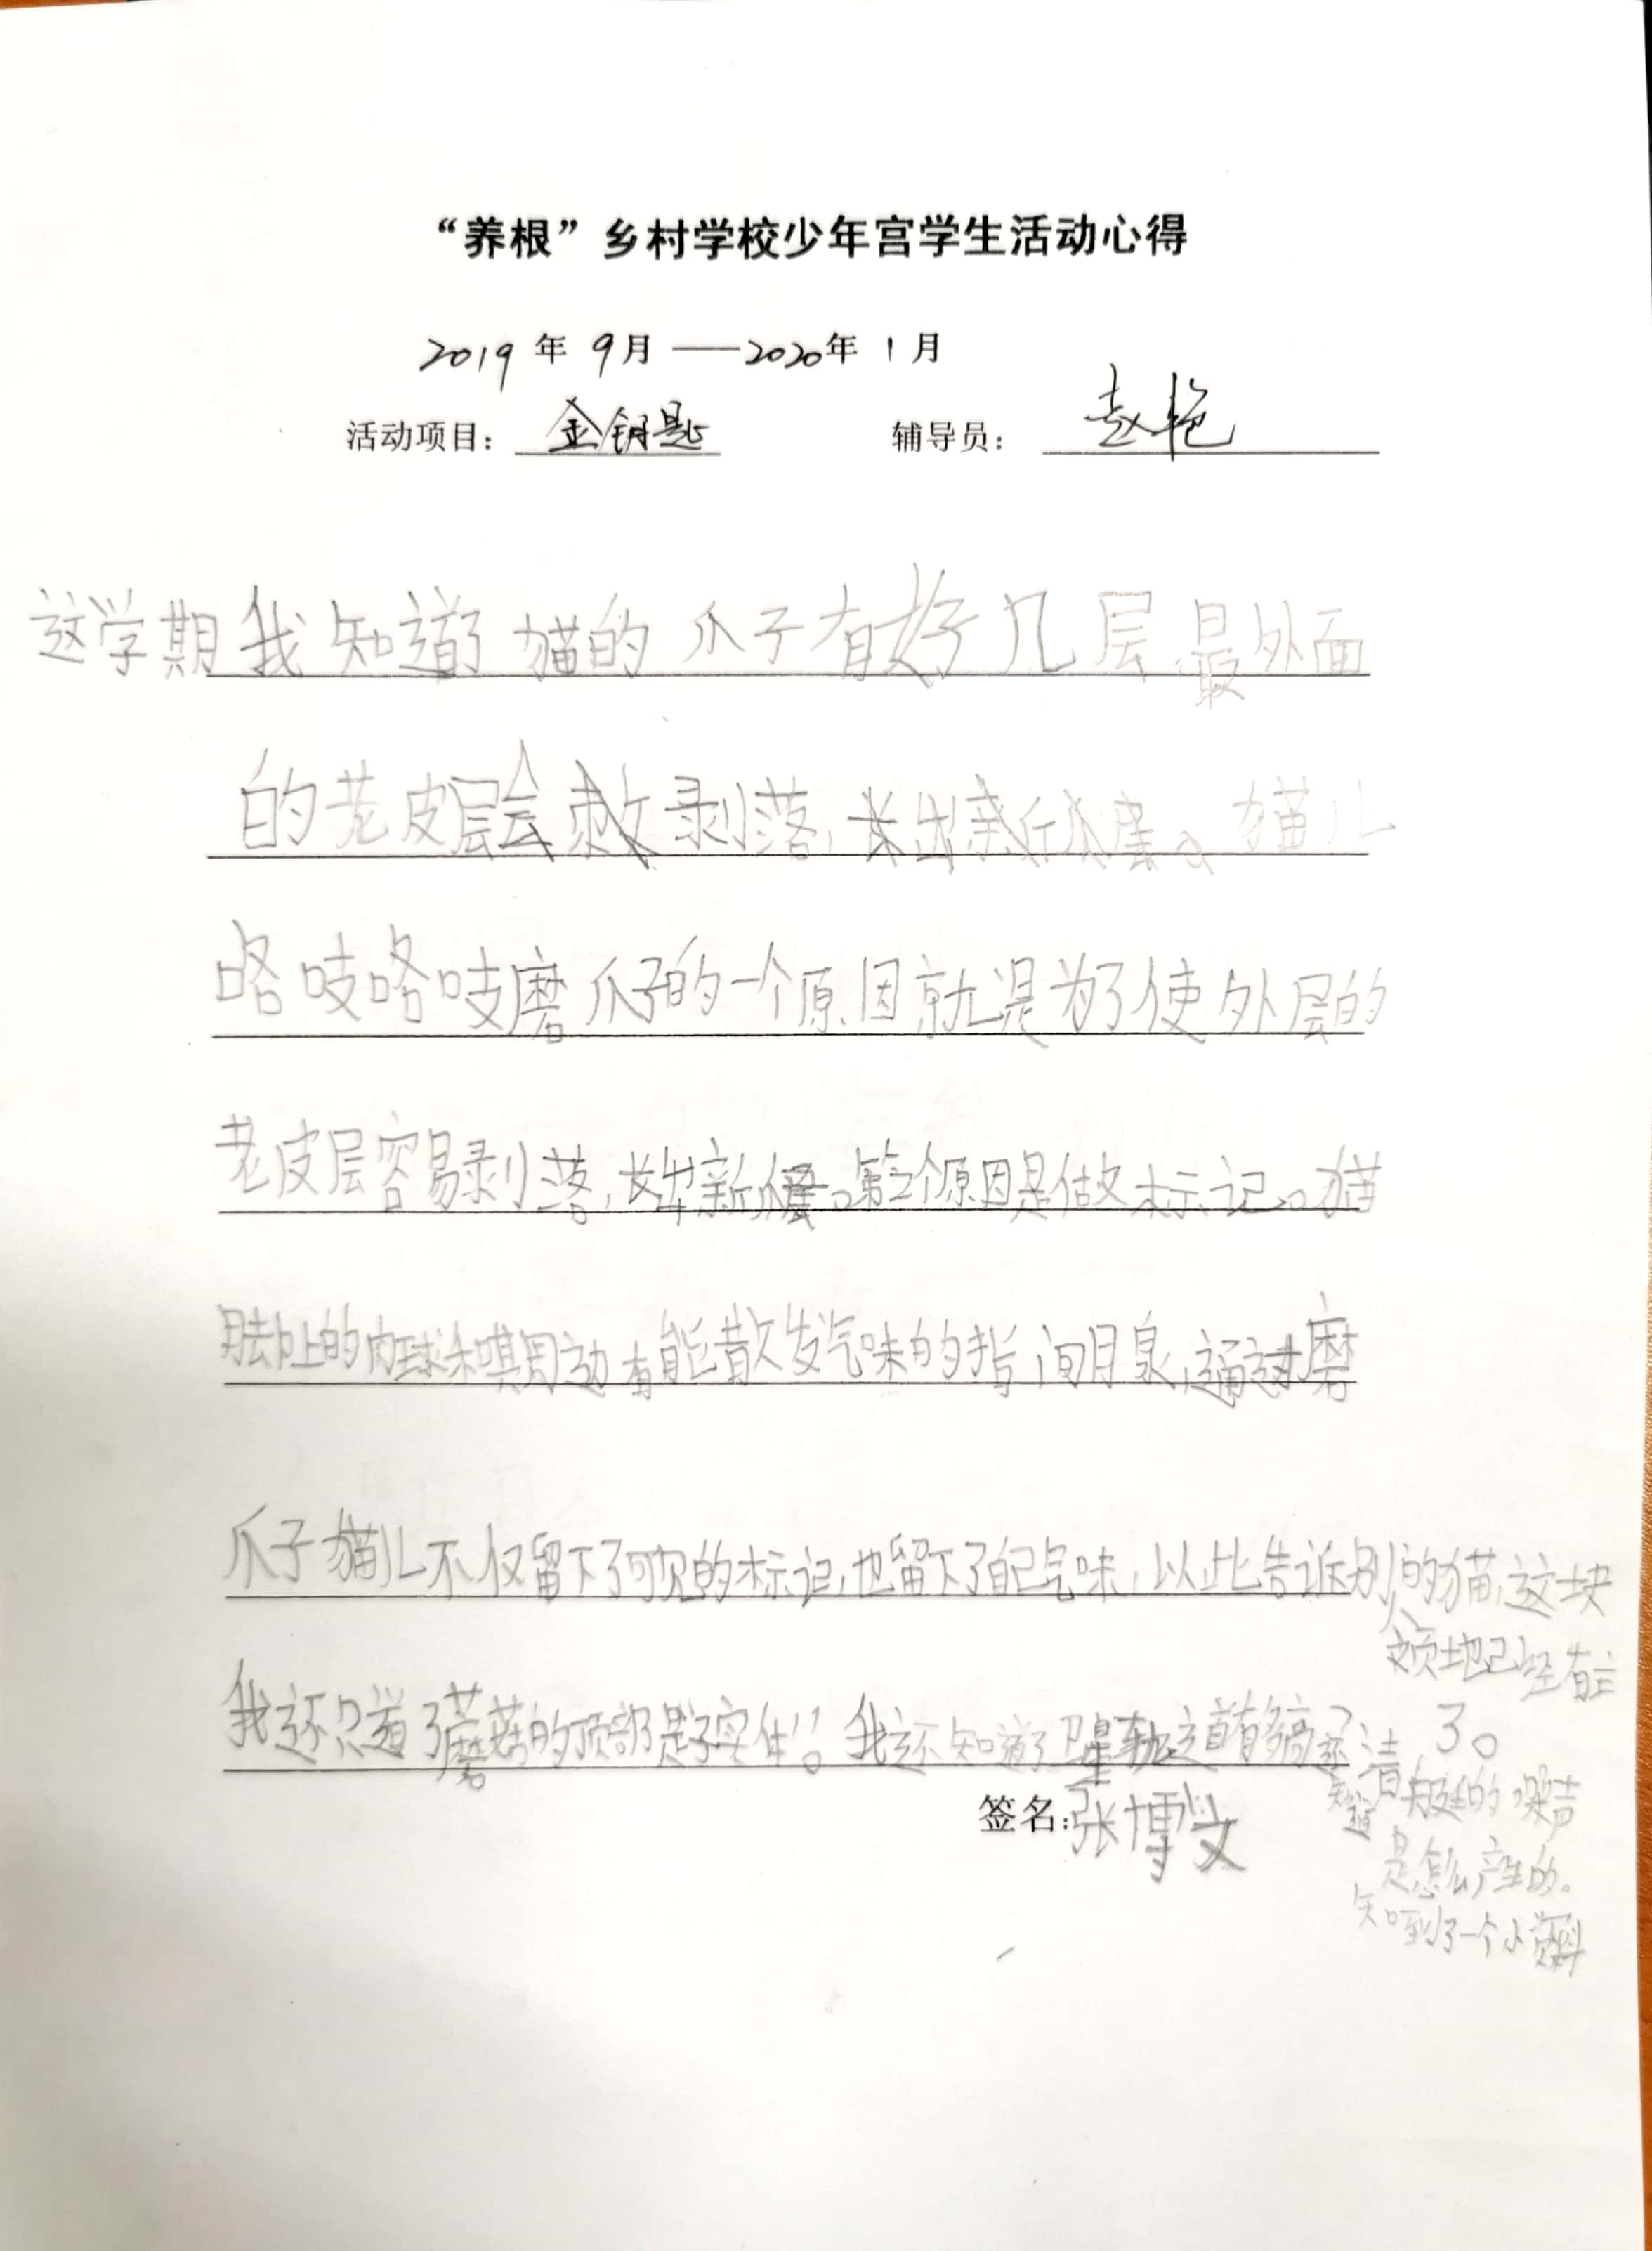 “养根”乡村学校少年宫学生活动心得
2019年9月——2020年1月
活动项目：金钥匙 辅导员：赵艳
这学期我知道了猫的爪子有好几层最外面
的老皮层会剥落，长出新爪。猫儿
咯吱咯吱磨爪子的一个原因就是为了使外层的
老皮层容易剥落，长出新爪。第2个原因是做标记。猫
脚上的肉球和周边有能散发气味的指间腺，通过磨
爪子猫儿不仅留下了可见的标记，也留下了自己气味，以此告诉别的猫，这块
领地已经有主
了。
我还只道了蘑菇的顶部是子实体！！。我还知道了卫星轨道有多高？还
知道
的噪声
是怎么产生的。
知到了一个小
签名：张博文